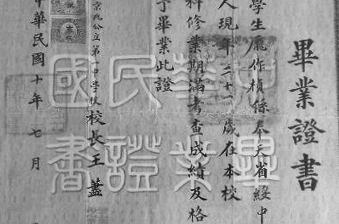 畢業證書
學生龐作楨係奉天省綏中
人現年二十一歲在本校
科修業期滿考查成績及格
予畢業此證
京兆公立第一中學校校長王蓋
中華民國十年七月
中華民國
畢業證書